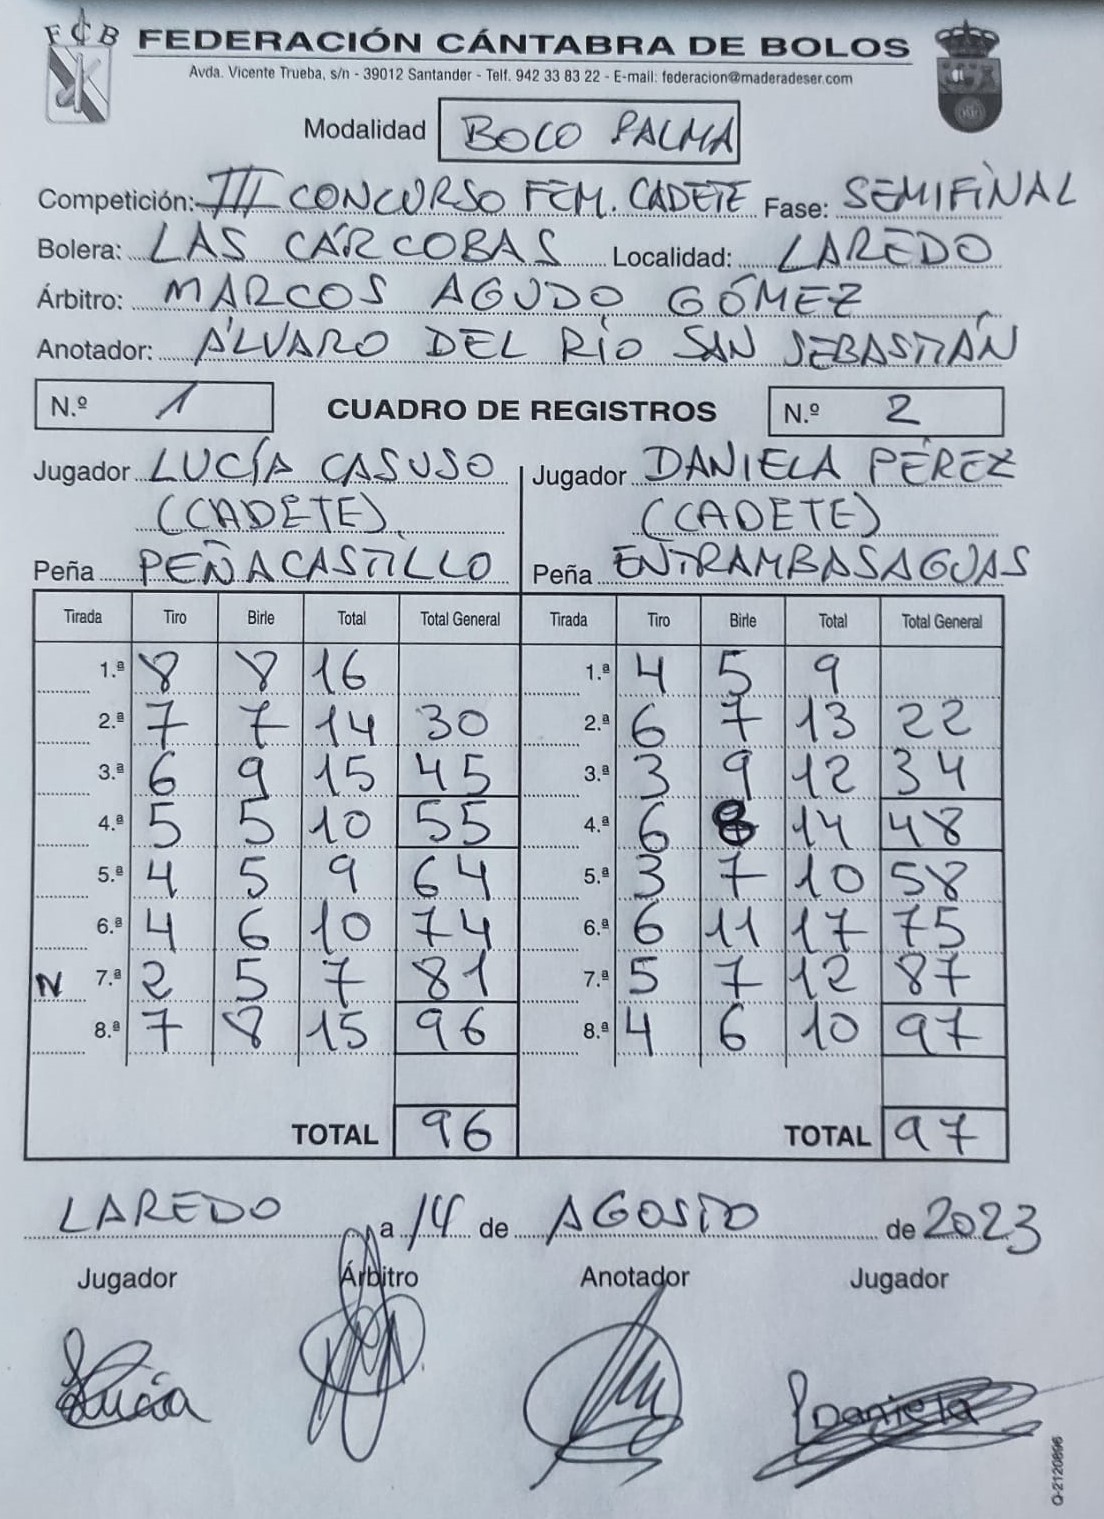 FCB FEDERACIÓN CÁNTABRA DE BOLOS
Avda. Vicente Trueba, s/n - 39012 Santander - Telf. 942 33 83 22 - E-mail: federacion@maderadeser.com
Modalidad BOLO PALMA
Competición: III CONCURSO FEM. CADETE Fase: SEMIFINAL
Bolera: LAS CÁRCOBAS Localidad: LAREDO
Árbitro: MARCOS AGUDO GÓMEZ
Anotador: ÁLVARO DEL RÍO SAN SEBASTIÁN
N.º 1 CUADRO DE REGISTROS N.º 2
Jugador LUCÍA CASUSO Jugador DANIELA PÉREZ
(CADETE) (CADETE)
Peña PEÑACASTILLO Peña ENTRAMBASAGUAS
Tirada Tiro Birle Total Total General Tirada Tiro Birle Total Total General
1.ª 8 8 16 1.ª 4 5 9
2.ª 7 7 14 30 2.ª 6 7 13 22
3.ª 6 9 15 45 3.ª 3 9 12 34
4.ª 5 5 10 55 4.ª 6 8 14 48
5.ª 4 5 9 64 5.ª 3 7 10 58
6.ª 4 6 10 74 6.ª 6 11 17 75
N 7.ª 2 5 7 81 7.ª 5 7 12 87
8.ª 7 8 15 96 8.ª 4 6 10 97
TOTAL 96 TOTAL 97
LAREDO a 14 de AGOSTO de 2023
Jugador Árbitro Anotador Jugador
Lucía Daniela
Q-2120896